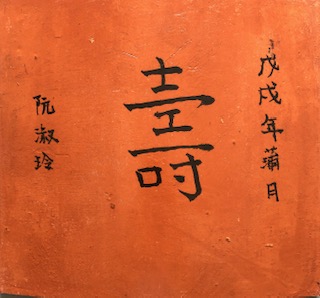 戊戌年蒲月
壽
阮淑玲